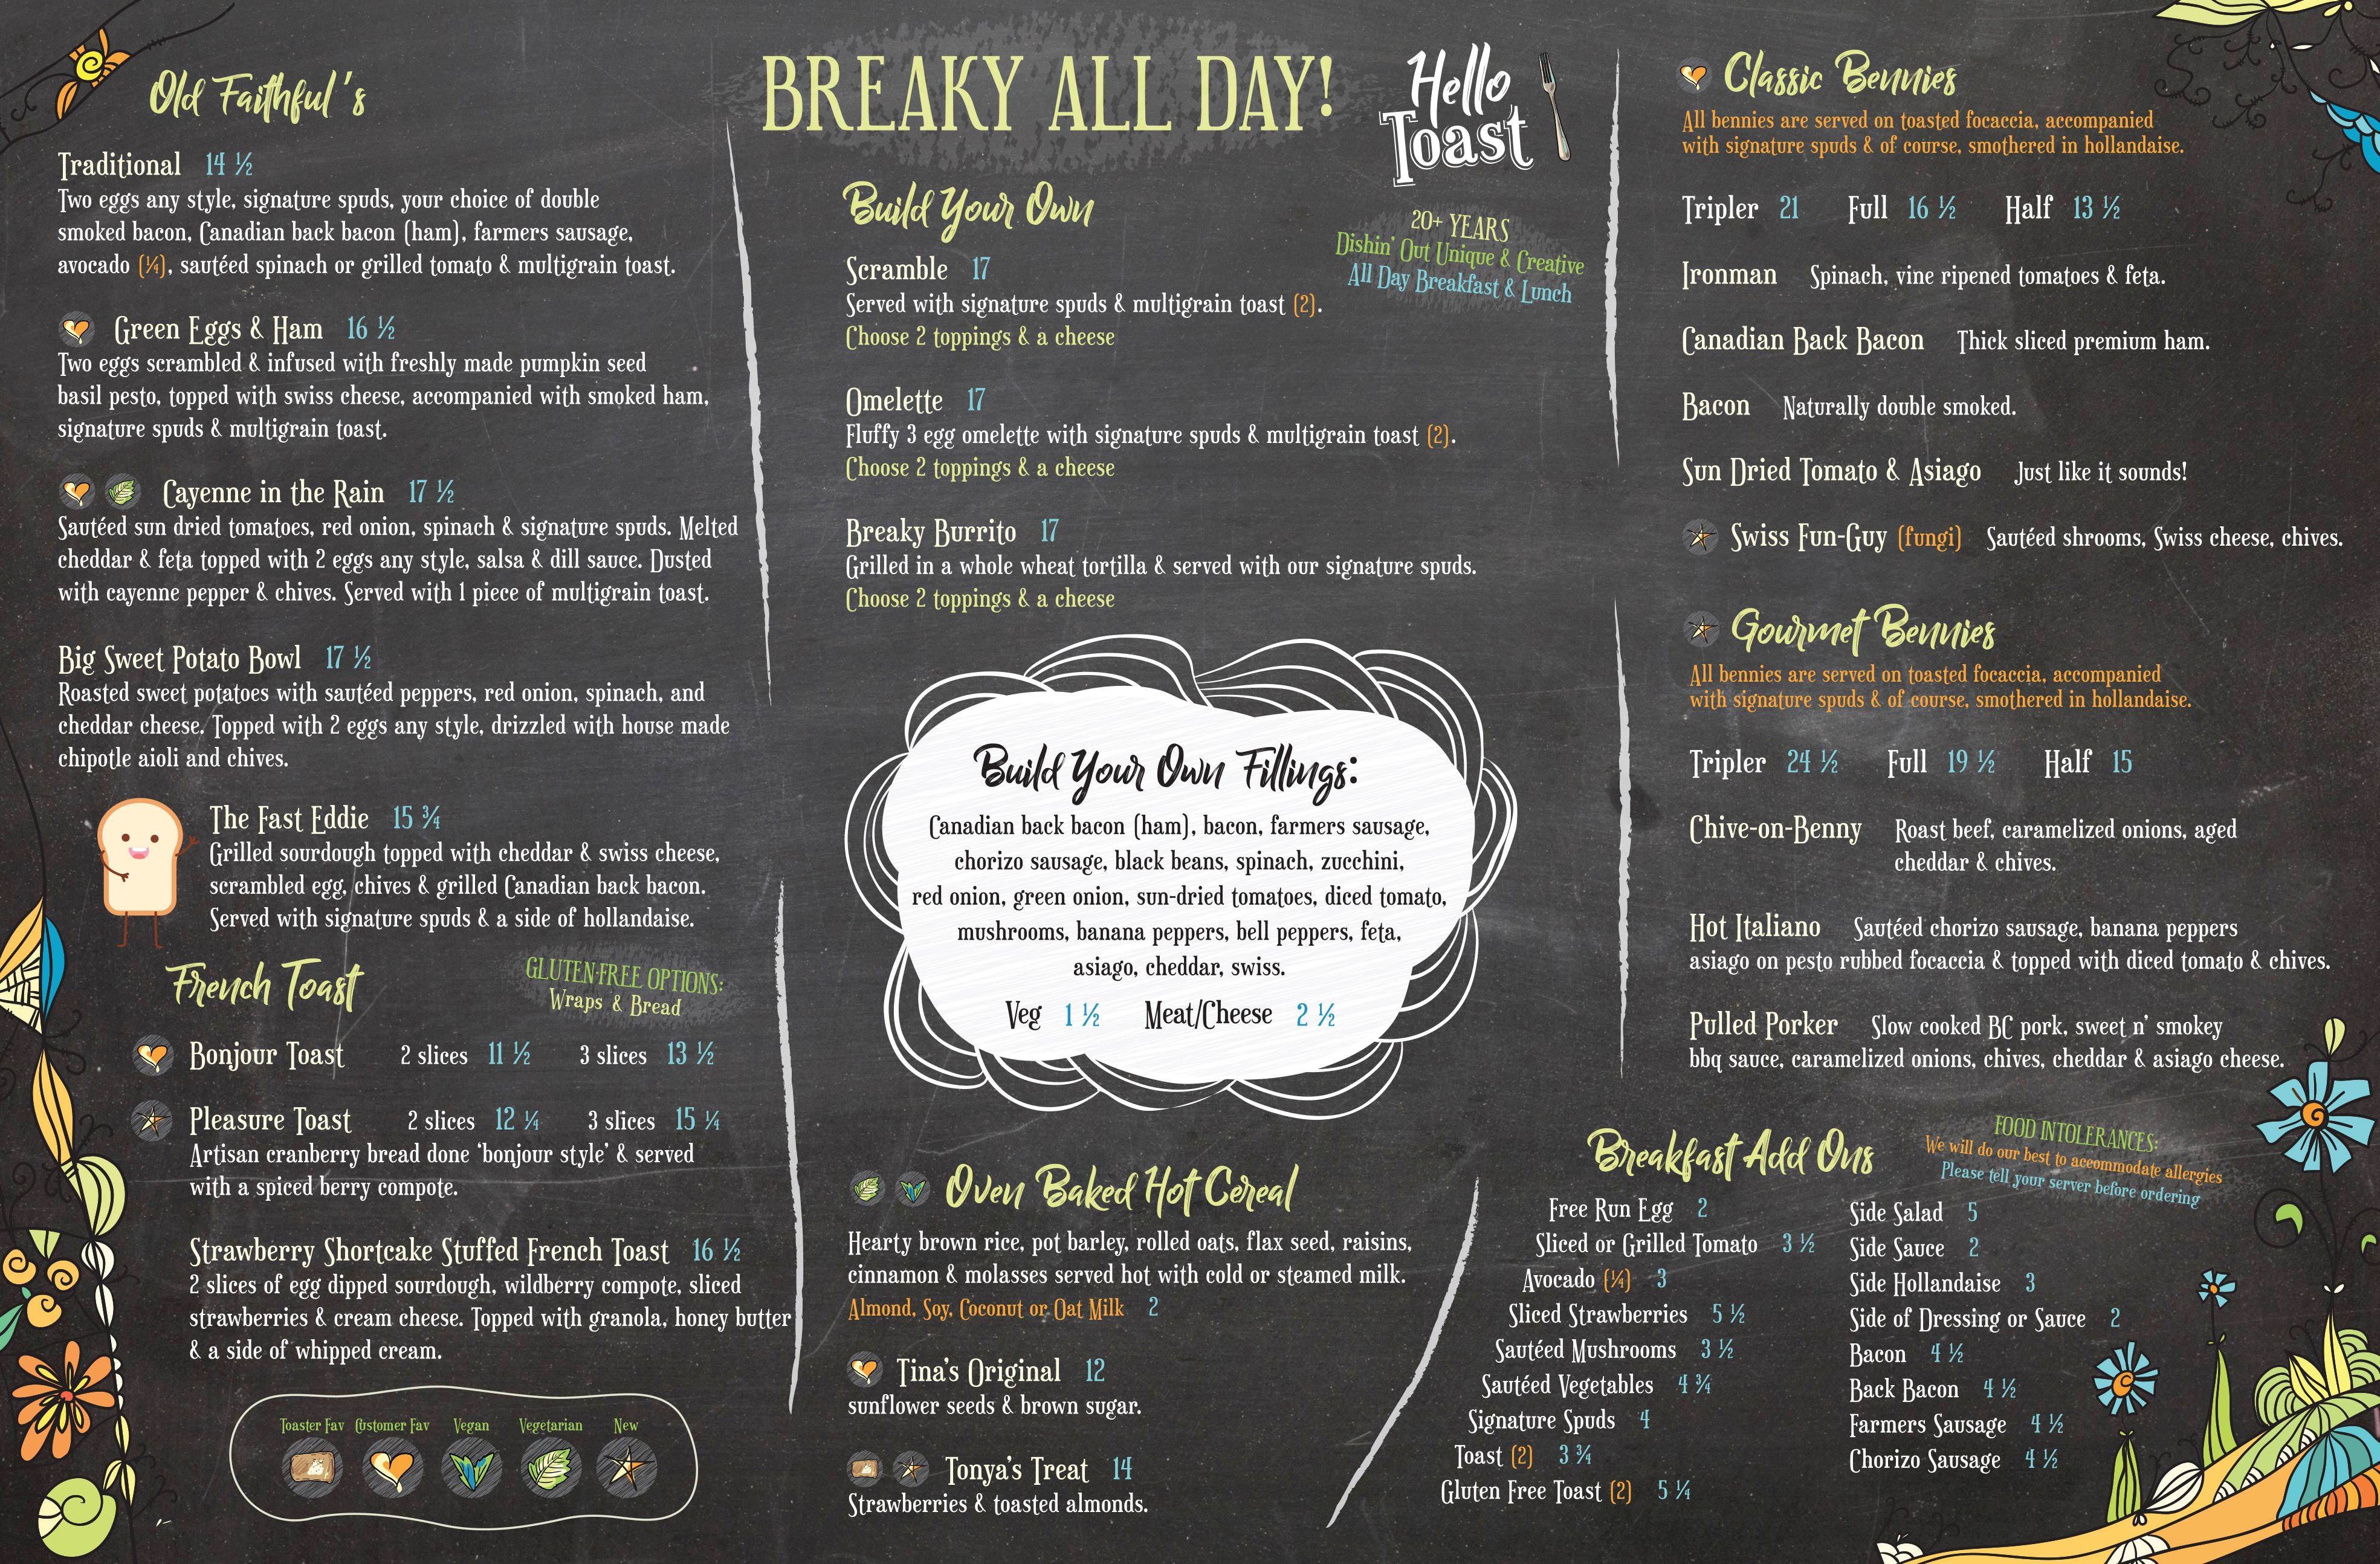 Old Faithful's
Traditional 14 ½
Two eggs any style, signature spuds, your choice of double
smoked bacon, Canadian back bacon (ham), farmers sausage,
avocado (¼), sautéed spinach or grilled tomato & multigrain toast.
Green Eggs & Ham 16 ½
Two eggs scrambled & infused with freshly made pumpkin seed
basil pesto, topped with swiss cheese, accompanied with smoked ham,
signature spuds & multigrain toast.
Cayenne in the Rain 17 ½
Sautéed sun dried tomatoes, red onion, spinach & signature spuds. Melted
cheddar & feta topped with 2 eggs any style, salsa & dill sauce. Dusted
with cayenne pepper & chives. Served with 1 piece of multigrain toast.
Big Sweet Potato Bowl 17 ½
Roasted sweet potatoes with sautéed peppers, red onion, spinach, and
cheddar cheese. Topped with 2 eggs any style, drizzled with house made
chipotle aioli and chives.
The Fast Eddie 15 ¾
Grilled sourdough topped with cheddar & swiss cheese,
scrambled egg, chives & grilled Canadian back bacon.
Served with signature spuds & a side of hollandaise.
French Toast
GLUTEN-FREE OPTIONS:
Wraps & Bread
Bonjour Toast 2 slices 11 ½ 3 slices 13 ½
Pleasure Toast 2 slices 12 ¼ 3 slices 15 ¼
Artisan cranberry bread done 'bonjour style' & served
with a spiced berry compote.
Strawberry Shortcake Stuffed French Toast 16 ½
2 slices of egg dipped sourdough, wildberry compote, sliced
strawberries & cream cheese. Topped with granola, honey butter
& a side of whipped cream.
Toaster Fav Customer Fav Vegan Vegetarian New
BREAKY ALL DAY!
Hello
Toast
20+ YEARS
Dishin' Out Unique & Creative
All Day Breakfast & Lunch
Build Your Own
Scramble 17
Served with signature spuds & multigrain toast (2).
Choose 2 toppings & a cheese
Omelette 17
Fluffy 3 egg omelette with signature spuds & multigrain toast (2).
Choose 2 toppings & a cheese
Breaky Burrito 17
Grilled in a whole wheat tortilla & served with our signature spuds.
Choose 2 toppings & a cheese
Build Your Own Fillings:
Canadian back bacon (ham), bacon, farmers sausage,
chorizo sausage, black beans, spinach, zucchini,
red onion, green onion, sun-dried tomatoes, diced tomato,
mushrooms, banana peppers, bell peppers, feta,
asiago, cheddar, swiss.
Veg 1 ½ Meat/Cheese 2 ½
Oven Baked Hot Cereal
Hearty brown rice, pot barley, rolled oats, flax seed, raisins,
cinnamon & molasses served hot with cold or steamed milk.
Almond, Soy, Coconut or Oat Milk 2
Tina's Original 12
sunflower seeds & brown sugar.
Tonya's Treat 14
Strawberries & toasted almonds.
Classic Bennies
All bennies are served on toasted focaccia, accompanied
with signature spuds & of course, smothered in hollandaise.
Tripler 21 Full 16 ½ Half 13 ½
Ironman Spinach, vine ripened tomatoes & feta.
Canadian Back Bacon Thick sliced premium ham.
Bacon Naturally double smoked.
Sun Dried Tomato & Asiago Just like it sounds!
Swiss Fun-Guy (fungi) Sautéed shrooms, Swiss cheese, chives.
Gourmet Bennies
All bennies are served on toasted focaccia, accompanied
with signature spuds & of course, smothered in hollandaise.
Tripler 24 ½ Full 19 ½ Half 15
Chive-on-Benny Roast beef, caramelized onions, aged
cheddar & chives.
Hot Italiano Sautéed chorizo sausage, banana peppers
asiago on pesto rubbed focaccia & topped with diced tomato & chives.
Pulled Porker Slow cooked BC pork, sweet n' smokey
bbq sauce, caramelized onions, chives, cheddar & asiago cheese.
Breakfast Add Ons
FOOD INTOLERANCES:
We will do our best to accommodate allergies
Please tell your server before ordering
Free Run Egg 2
Sliced or Grilled Tomato 3 ½
Avocado (¼) 3
Sliced Strawberries 5 ½
Sautéed Mushrooms 3 ½
Sautéed Vegetables 4 ¾
Signature Spuds 4
Toast (2) 3 ¾
Gluten Free Toast (2) 5 ¼
Side Salad 5
Side Sauce 2
Side Hollandaise 3
Side of Dressing or Sauce 2
Bacon 4 ½
Back Bacon 4 ½
Farmers Sausage 4 ½
Chorizo Sausage 4 ½